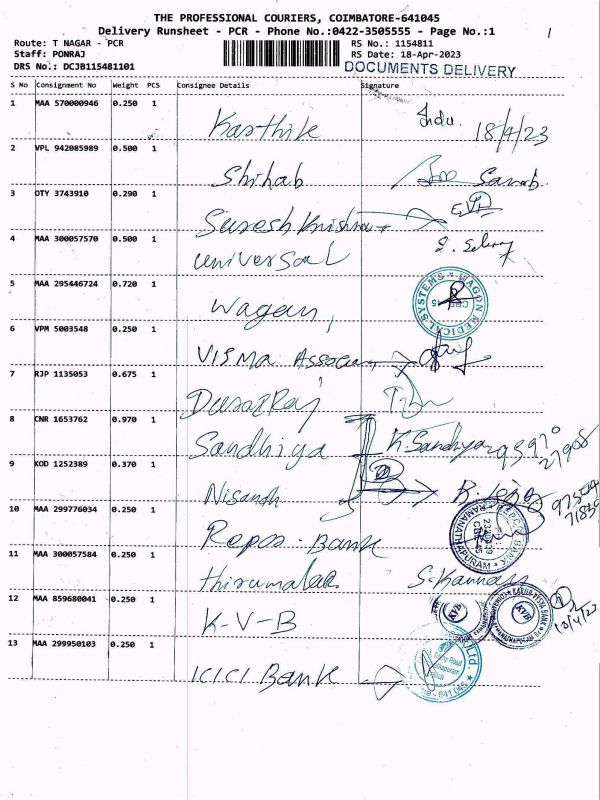 THE PROFESSIONAL COURIERS, COIMBATORE-641045
Delivery Runsheet - PCR - Phone No.:0422-3505555 - Page No.:1
Route: T NAGAR - PCR RS No.: 1154811
Staff: PONRAJ RS Date: 18-Apr-2023
DRS No.: DCJB115481101 DOCUMENTS DELIVERY
S No Consignment No Weight PCS Consignee Details Signature
1 MAA 570000946 0.250 1 Karthik Indu. 18/4/23
2 VPL 942085989 0.500 1 Shihab
3 OTY 3743910 0.290 1 Suresh Krishna
4 MAA 300057570 0.500 1 Universal
5 MAA 295446724 0.720 1 Wagan WAGON MEDICAL SYSTEMS
6 VPM 5003548 0.250 1 VISMA
7 RJP 1135053 0.675 1
8 CNR 1653762 0.970 1 Sandhiya K. Sandhiya
9 KOD 1252389 0.370 1 Nisandh
10 MAA 299776034 0.250 1 Repco - Bank REPCO BANK RAMANATHAPURAM
11 MAA 300057584 0.250 1 S. Kannan
12 MAA 859680041 0.250 1 K-V-B KVB KVB
13 MAA 299950103 0.250 1 ICICI Bank Ltd. 641 045